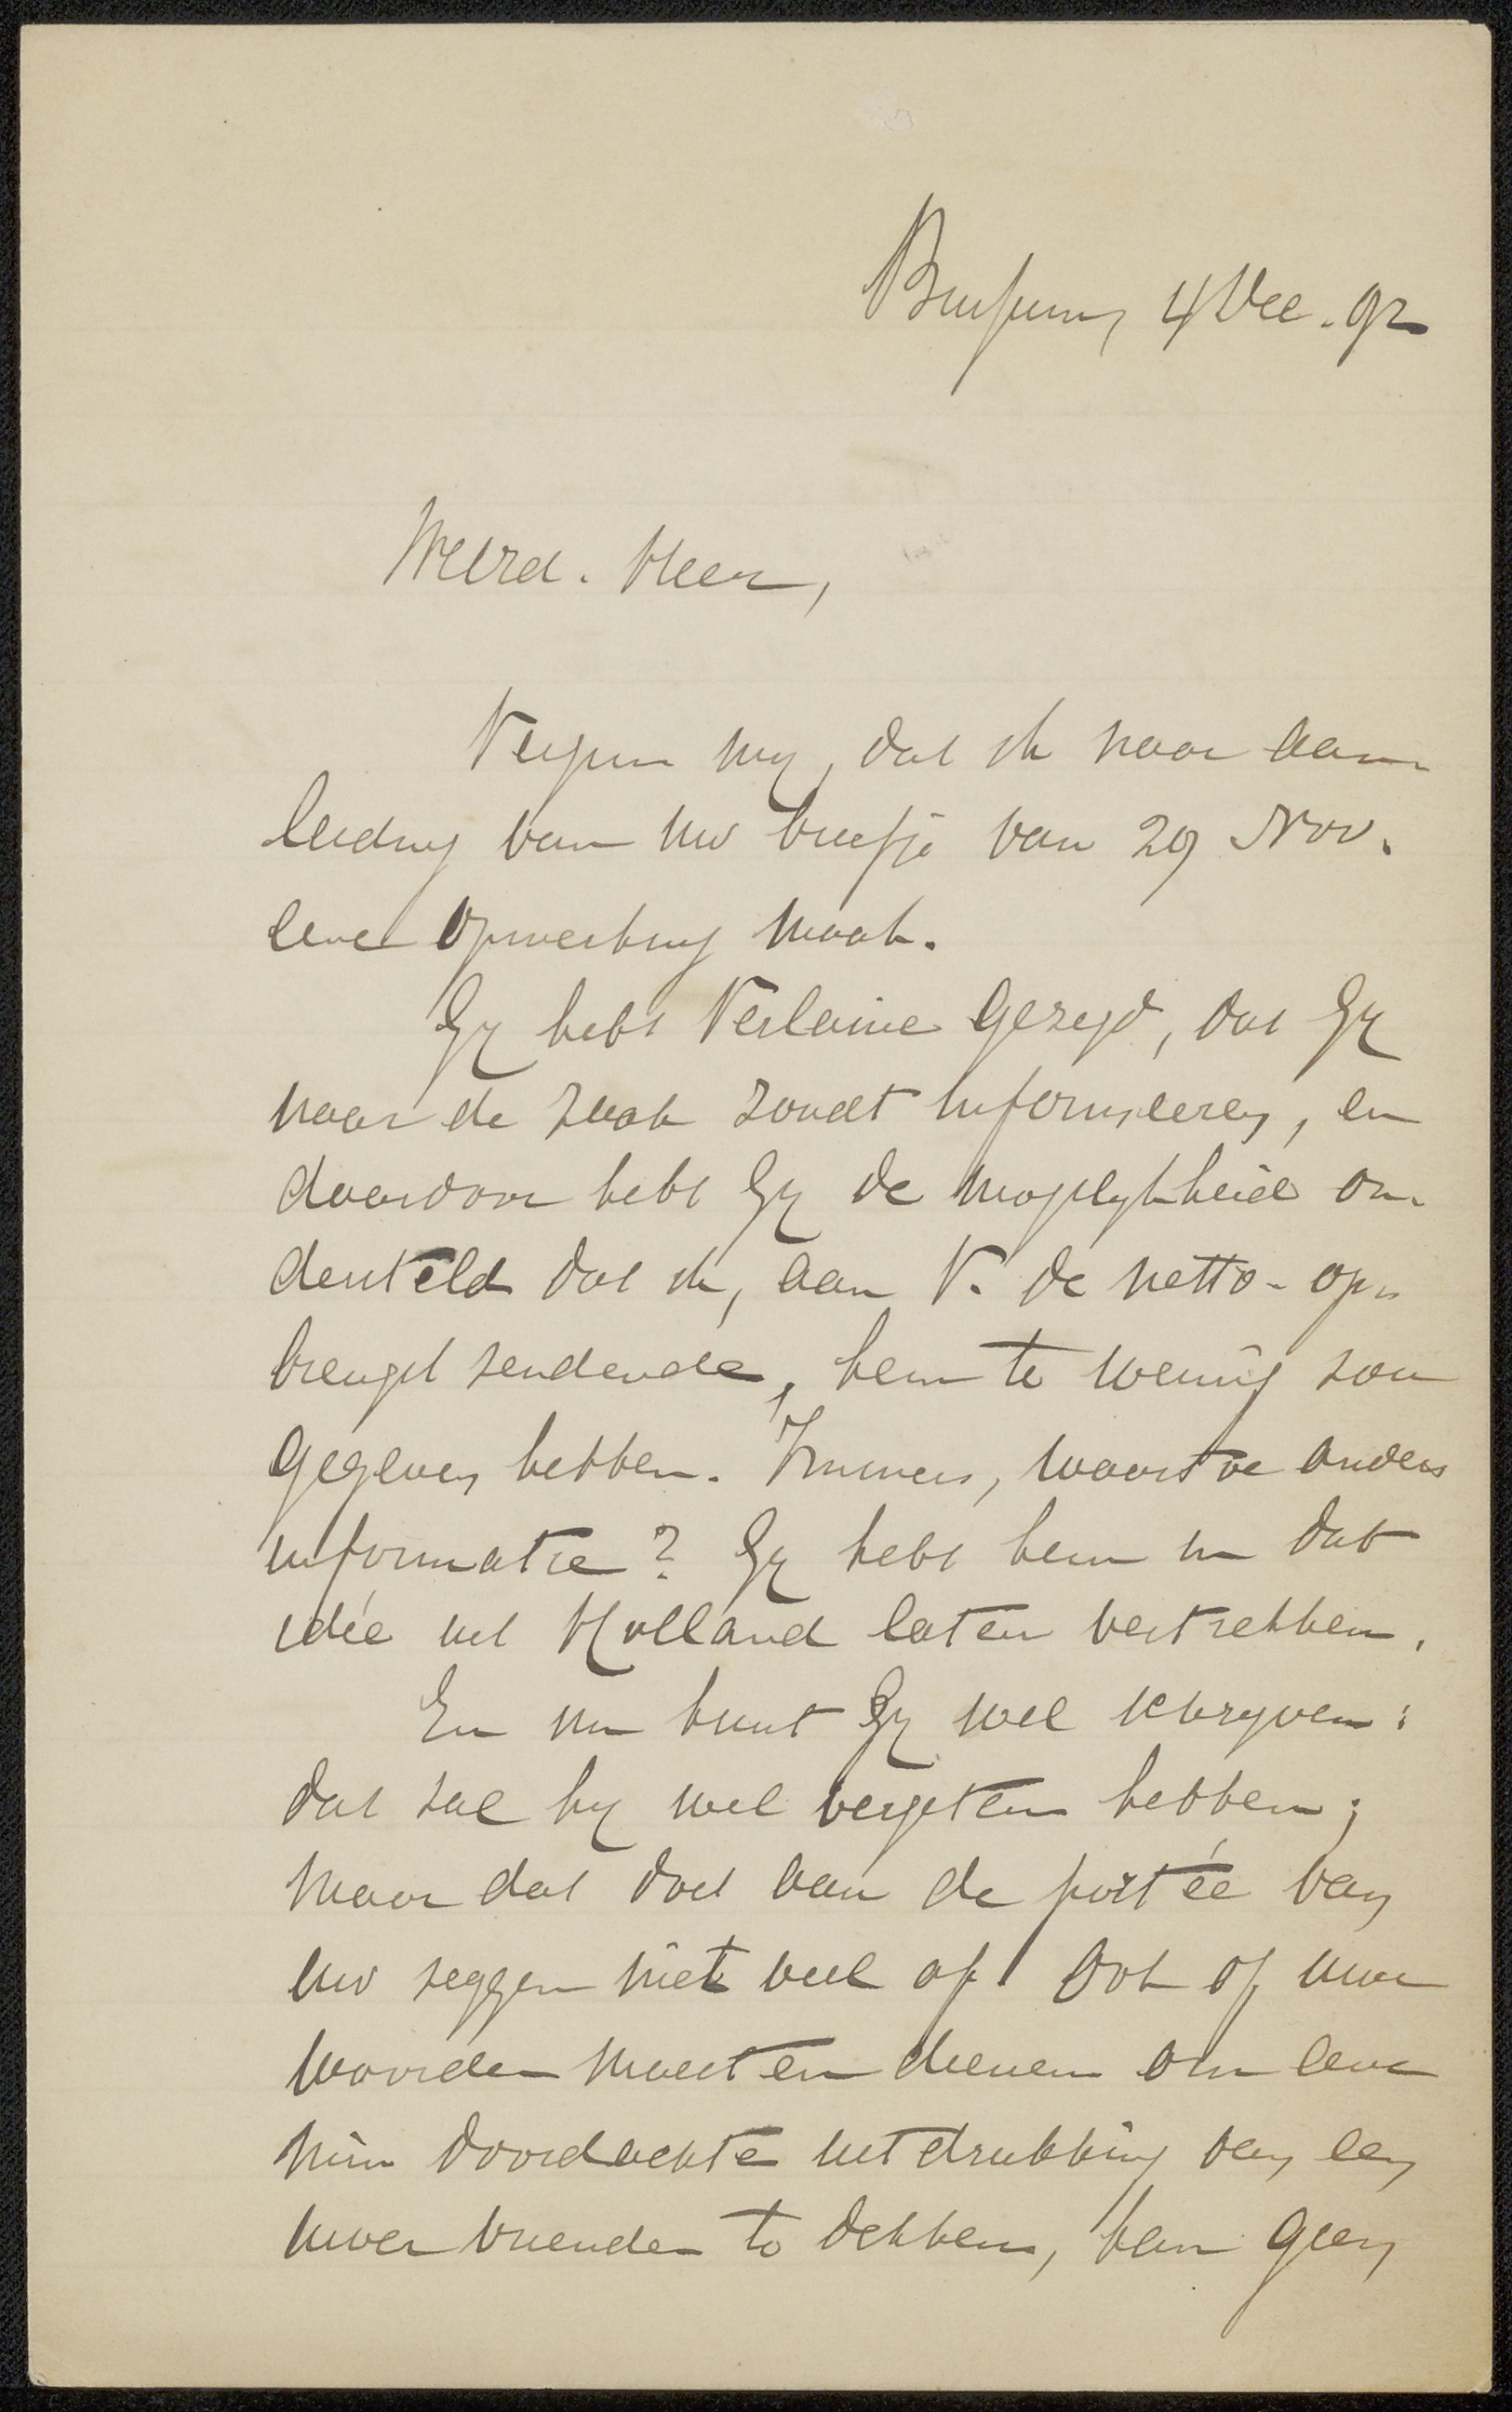 Bussum, 4 Dec. 92
Weled. Heer,
Vergun my, dat ik naar aan
leiding van uw briefje van 29 Nov.
eene opmerking maak.
Gy hebt Verlaine gezegd, dat Gy
naar de zaak zoudt informeeren, en
daardoor hebt Gy de mogelykheid on-
dersteld dat ik, aan V. de netto-op-
brengst zendende, hem te weinig zou
gegeven hebben. Immers, waartoe anders
informatie? Gy hebt hem in dat
idée uit Holland laten vertrekken.
En nu kunt Gy wel schryven:
dat zal hy wel vergeten hebben;
maar dat doet aan de portée van
uw zeggen niet veel af! Ook of uwe
woorden moesten dienen om eene
min doordachte uitdrukking van een
uwer vrienden te dekken, kan geen